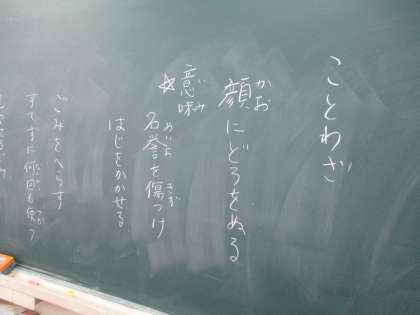 ことわざ
顔にどろをぬる
かお
☆意味
いみ
名誉を傷つけ
めいよ
きず
はじをかかせる。
ごみをへらす
すてずに何回も使う